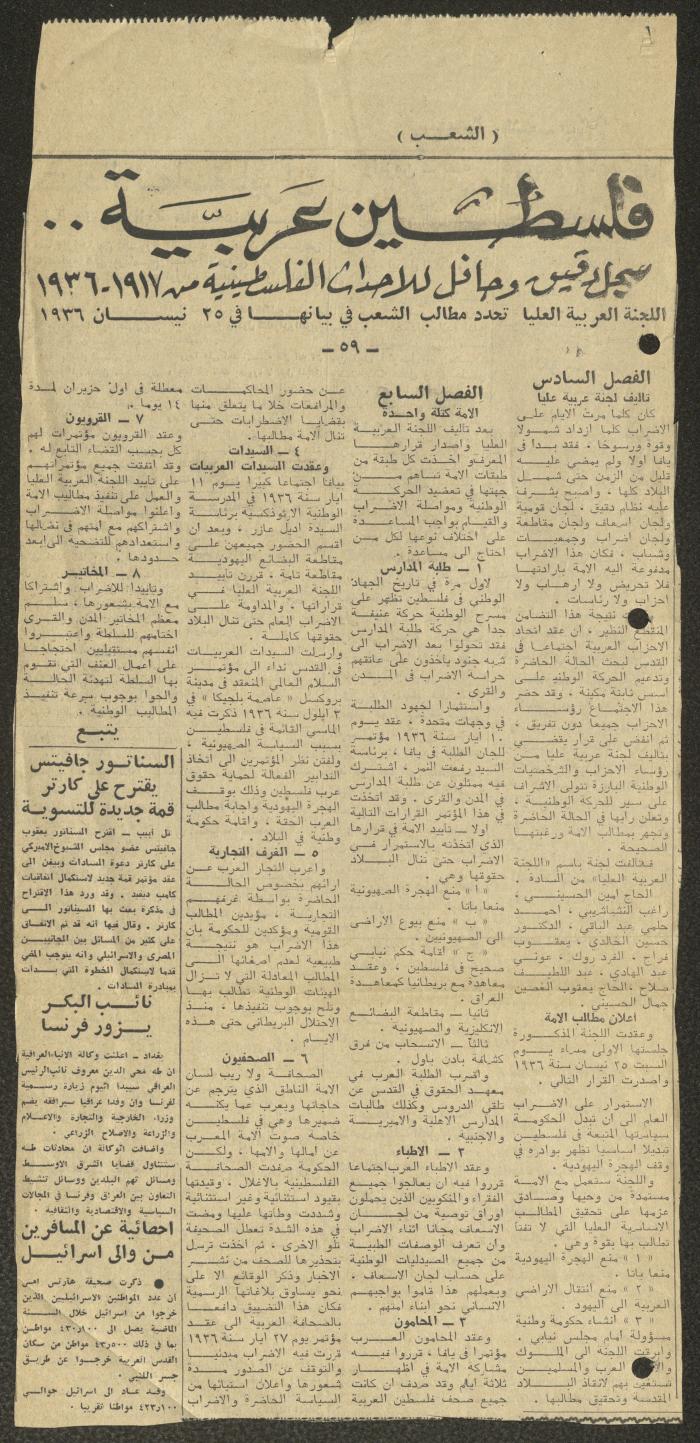 ( الشعـــب )
فلسطـــين عربيـــة ..
سجل دقيق وحافل للاحداث الفلسطينية من ١٩١٧-١٩٣٦
اللجنة العربية العليا تحدد مطالب الشعب في بيانهــا في ٢٥ نيســان ١٩٣٦
ــ ٥٩ ــ
الفصل السادس
تاليف لجنة عربية عليا
كان كلما مرت الايام على
الاضراب كلما ازداد شمــولا
وقوة ورسوخا . فقد بــدأ فى
يافا أولا ولم يمضى عليــه
قليل من الزمن حتى شمــل
البلاد كلها ، واصبح يشرف
عليه نظام دقيق . لجان قومية
ولجان اسعاف ولجان مقاطعة
ولجان اضراب وجمعيــات
وشباب ، فكان هذا الاضراب
مدفوعة اليه الامة بارادتهــا
فلا تحريض ولا ارهــاب ولا
احزاب ولا رئاسات .
نتيجة هذا التضامن
المنقطع النظير ، ان عقد اتحاد
الاحزاب العربية اجتماعــا فى
القدس لبحث الحالة الحاضرة
وتدعيم الحركة الوطنية علــى
أسس ثابتة مكينة ، وقد حضر
هذا الاجتماع رؤســـاء
الاحزاب جميعا دون تفريق ،
ثم انفض على قرار يقضــي
بتاليف لجنة عربية عليا مــن
رؤساء الاحزاب والشخصيات
الوطنية البارزة تتولى الاشراف
على سير للحركة الوطنيــة ،
وتعلن رأيها في الحالة الحاضرة
وتجهر بمطالب الامة ورغبتهــا
الصحيحة .
فتالفت لجنة باسم «اللجنة
العربية العليا» من السادة .
الحاج امين الحسينــي ،
راغب النشاشيبي ، احمــد
حلمي عبد الباقي ، الدكتور
حسين الخالدي ، يعقــوب
فراج ، الفرد روك ، عونــي
عبد الهادي ، عبد اللطيــف
صلاح ، الحاج يعقوب الغصين
جمال الحسيني .
اعلان مطالب الامة
وعقدت اللجنة المذكــورة
جلستها الاولى مساء يــوم
السبت ٢٥ نيسان سنة ١٩٣٦
واصدرت القرار التالي .
الاستمرار على الاضــراب
العام الى ان تبدل الحكومــة
سياستها المتبعة فى فلسطيــن
تبديلا أساسيا تظهر بوادره في
وقف الهجرة اليهودية .
واللجنة ستعمل مع الامــة
مستمدة من وحيها وصــادق
عزمها على تحقيق المطالــب
الاساسية العليا التي لا تفتأ
تطالب بها بقوة وهي .
« ١ » منع الهجرة اليهودية
منعا باتا .
« ٢ » منع انتقال الاراضي
العربية الى اليهود .
« ٣ » انشاء حكومة وطنية
مسؤولة امام مجلس نيابي .
وابرقت اللجنة الى الملــوك
العرب والمسلميــن
تستغيث بهم لانقاذ البــلاد
المقدسة وتحقيق مطالبهــا .
الفصل السابع
الامة كتلة واحدة
بعد تاليف اللجنة العربيــة
العليا واصدار قرارهــا
المعروف اخذت كل طبقة من
طبقات الامة تساهم مــن
جهتها فى تعضيد الحركــة
الوطنية ومواصلة الاضــراب
والقيــام بواجب المساعــدة
على اختلاف نوعها لكل مــن
احتاج الى مساعدة .
١ ــ طلبة المدارس
لاول مرة في تاريخ الجهاد
الوطني فى فلسطين نظهر على
مسرح الوطنية حركة عنيفــة
جدا هي حركة طلبة المدارس
فقد تحولوا بعد الاضراب الى
شبه جنود يأخذون على عاتقهم
حراسة الاضراب فى المــدن
والقرى .
واستثمارا لجهود الطلبــة
فى وجهات متحدة ، عقد يــوم
١٠ أيار سنة ١٩٣٦ مؤتمــر
للجان الطلبة فى يافا ، برئاسة
السيد رفعت النمر ، اشتــرك
فيه ممثلون عن طلبة المدارس
في المدن والقرى . وقد اتخذت
في هذا المؤتمر القرارات التالية
اولا ــ تاييد الامة في قرارها
الذى اتخذته بالاستمرار فــى
الاضراب حتى تنال البــلاد
حقوقها وهي .
« ا » منع الهجرة الصهيونية
منعا باتا .
« ب » منع بيوع الاراضى
الى الصهيونيين .
« ج » اقامة حكم نيابــي
صحيح في فلسطين ، وعقــد
معاهدة مع بريطانيا كمعاهــدة
العراق .
ثانيــا ــ مقاطعة البضائــع
الانكليزية والصهيونية .
ثالثــا ــ الانسحاب من فرق
كشافة بادن باول .
واضرب الطلبة العرب في
معهــد الحقوق في القدس عن
تلقي الدروس وكذلك طالبات
المدارس الاهلية والاميريــة
والاجنبية .
٢ ــ الاطبــاء
وعقد الاطباء العرب اجتماعا
قرروا فيه ان يعالجوا جميــع
الفقراء والمنكوبين الذين يحملون
اوراق توصية من لجــان
الاسعاف مجانا اثناء الاضراب
وان تعرف الوصفات الطبيــة
من جميع الصيدليات الوطنية
على حساب لجان الاسعاف .
وبعملهم هذا قاموا بواجبهــم
الانسانى نحو ابناء امتهم .
٣ ــ المحامون
وعقد المحامون العــرب
مؤتمرا فى يافا ، قرروا فيــه
مشاركة الامة في اظهــار
ثلاثة ايام وقد صدف ان كانت
جميع صحف فلسطين العربية
عــن حضور المحاكمــات
والمرافعات خلا ما يتعلق منها
بقضايــا الاضطرابات حتــى
تنال الامة مطالبها .
٤ ــ السيدات
وعقدت السيدات العربيــات
بيافا اجتماعا كبيرا يــوم ١١
أيار سنة ١٩٣٦ في المدرسة
الوطنية الارثوذكسية برئاســة
السيدة اديل عازر ، وبعد ان
اقسم الحضور جميعهن علــى
مقاطعة البضائع اليهوديــة
مقاطعة تامة ، قررن تاييــد
اللجنة العربية العليا فــي
قراراتها ، والمداومة علــى
الاضراب العام حتى تنال البلاد
حقوقها كاملــة .
وارسلت السيدات العربيــات
فى القدس نداء الى مؤتمــر
السلام العالمي المنعقد في مدينة
بروكسل «عاصمة بلجيكا» فى
٣ ايلول سنة ١٩٣٦ ذكرت فيه
الماسي القائمة فى فلسطيــن
بسبب السياسة الصهيونية ،
ولفتن نظر المؤتمرين الى اتخاذ
التدابير الفعالة لحماية حقوق
عرب فلسطين وذلك بوقــف
الهجرة اليهودية واجابة مطالب
العرب الحقة ، واقامة حكومة
وطنية في البلاد .
٥ ــ الغرف التجارية
واعرب التجار العرب عــن
ارائهم بخصوص الحالــة
الحاضرة بواسطة غرفهــم
التجارية ، مؤيدين المطالب
القومية ومؤكدين للحكومة بان
هذا الاضراب هو نتيجــة
طبيعية لعدم اصغائها الــى
المطالب العادلة التي لا تــزال
الهيئات الوطنية تطالب بهــا
وتلح بوجوب تنفيذها ، منــذ
الاحتلال البريطاني حتى هــذه
الايــام .
٦ ــ الصحفيون
الصحافة ولا ريب لسان
الامة الناطق الذي يترجم عن
حاجاتها ويعرب عما يكنــه
ضميرها وهي في فلسطيــن
خاصه صوت الامة المعــرب
عن امالها والامها ، ولكــن
الحكومة صفدت الصحافــة
الفلسطينية بالاغلال ، وقيدتها
بقيود استثنائية وغير استثنائية
وشددت وطأتها عليها ومضت
في هذه الشدة تعطل الصحيفة
تلو الاخرى . ثم اخذت ترسل
بتحذيرها للصحف من نشــر
الاخبار وذكر الوقائع الا على
نحو يساوق بلاغاتها الرسمية
فكان هذا التضييق دافعــا
بالصحافة العربية الى عقــد
مؤتمر يوم ٢٧ أيار سنة ١٩٣٦
قررت فيه الاضراب مبدئيــا
والتوقف عن الصدور مــدة
شعورها واعلان استيائها من
السياسة الحاضرة والاضراب
معطلة فى اول حزيران لمــدة
١٤ يوما .
٧ ــ القرويون
وعقد القرويون مؤتمرات لهم
كل بحسب القضاء التابع له .
وقد اتفقت جميع مؤتمراتهــم
على تاييد اللجنة العربية العليا
والعمل على تنفيذ مطاليب الامة
واعلنوا مواصلة الاضــراب
واشتراكهم مع امتهم فى نضالها
واستعدادهم للتضحية الى ابعد
حدودهــا .
٨ ــ المخاتيــر
وتاييدا للاضراب واشتراكا
مع الامة بشعورها ، سلــم
معظم المخاتير المدن والقــرى
اختامهم للسلطة واعتبــروا
انفسهم مستقيليين احتجاجــا
على اعمال العنف التي تقــوم
بها السلطة لتهدئة الحالــة
والحوا بوجوب سرعة تنفيــذ
المطاليب الوطنية .
يتبــع
السناتــور جافيتس
يقترح على كارتر
قمة جديدة للتسويــة
تل أبيب ــ اقترح السناتور يعقوب
جافيتس عضو مجلس الشيوخ الاميركي
على كارتر دعوة السادات وبيغن الى
عقد مؤتمر قمة جديد لاستكمال اتفاقيات
كامب ديفيد . وقد ورد هذا الاقتراح
فى مذكرة بعث بها السيناتور الــى
كارتر . وقال فيها انه قد تم الاتفــاق
على كثير من المسائل بين الجانبيــن
المصرى والاسرائيلي وانه يتوجب المضي
قدما لاستكمال الخطوة التي بــدأت
بمبادرة السادات .
نائــب البكر
يــزور فرنسا
بغداد ــ اعلنت وكالة الانباء العراقية
ان طه محي الدين معروف نائب الرئيس
العراقي سيبدأ اليوم زيارة رسميــة
لفرنسا وان وفدا عراقيا سيرافقه يضم
وزراء الخارجية والتجارة والاعــلام
والزراعة والاصلاح الزراعي .
واضافت الوكالة ان محادثات طــه
ستتناول قضايا الشرق الاوســط
ومسائل تهم البلدين ووسائل تنشيط
التعاون بين العراق وفرنسا في المجالات
السياسية والاقتصادية والثقافية .
احصائية عن المسافرين
مــن والى اسرائيــل
● ذكرت صحيفة هآرتس امس
ان عدد المواطنين الاسرائيليين الذين
خرجوا من اسرائيل خلال الســنة
الماضية يصل الى ٤٣٠ر١٠٠ مواطــن
بما في ذلك ٤٣ر٥٠٠ مواطن من سكان
القدس العربية خرجــوا عن طريــق
جسر اللنبي .
وقــد عــاد الى اسرائيل حوالــي
٤٢٣ر١٠٠ مواطنا تقريبا .